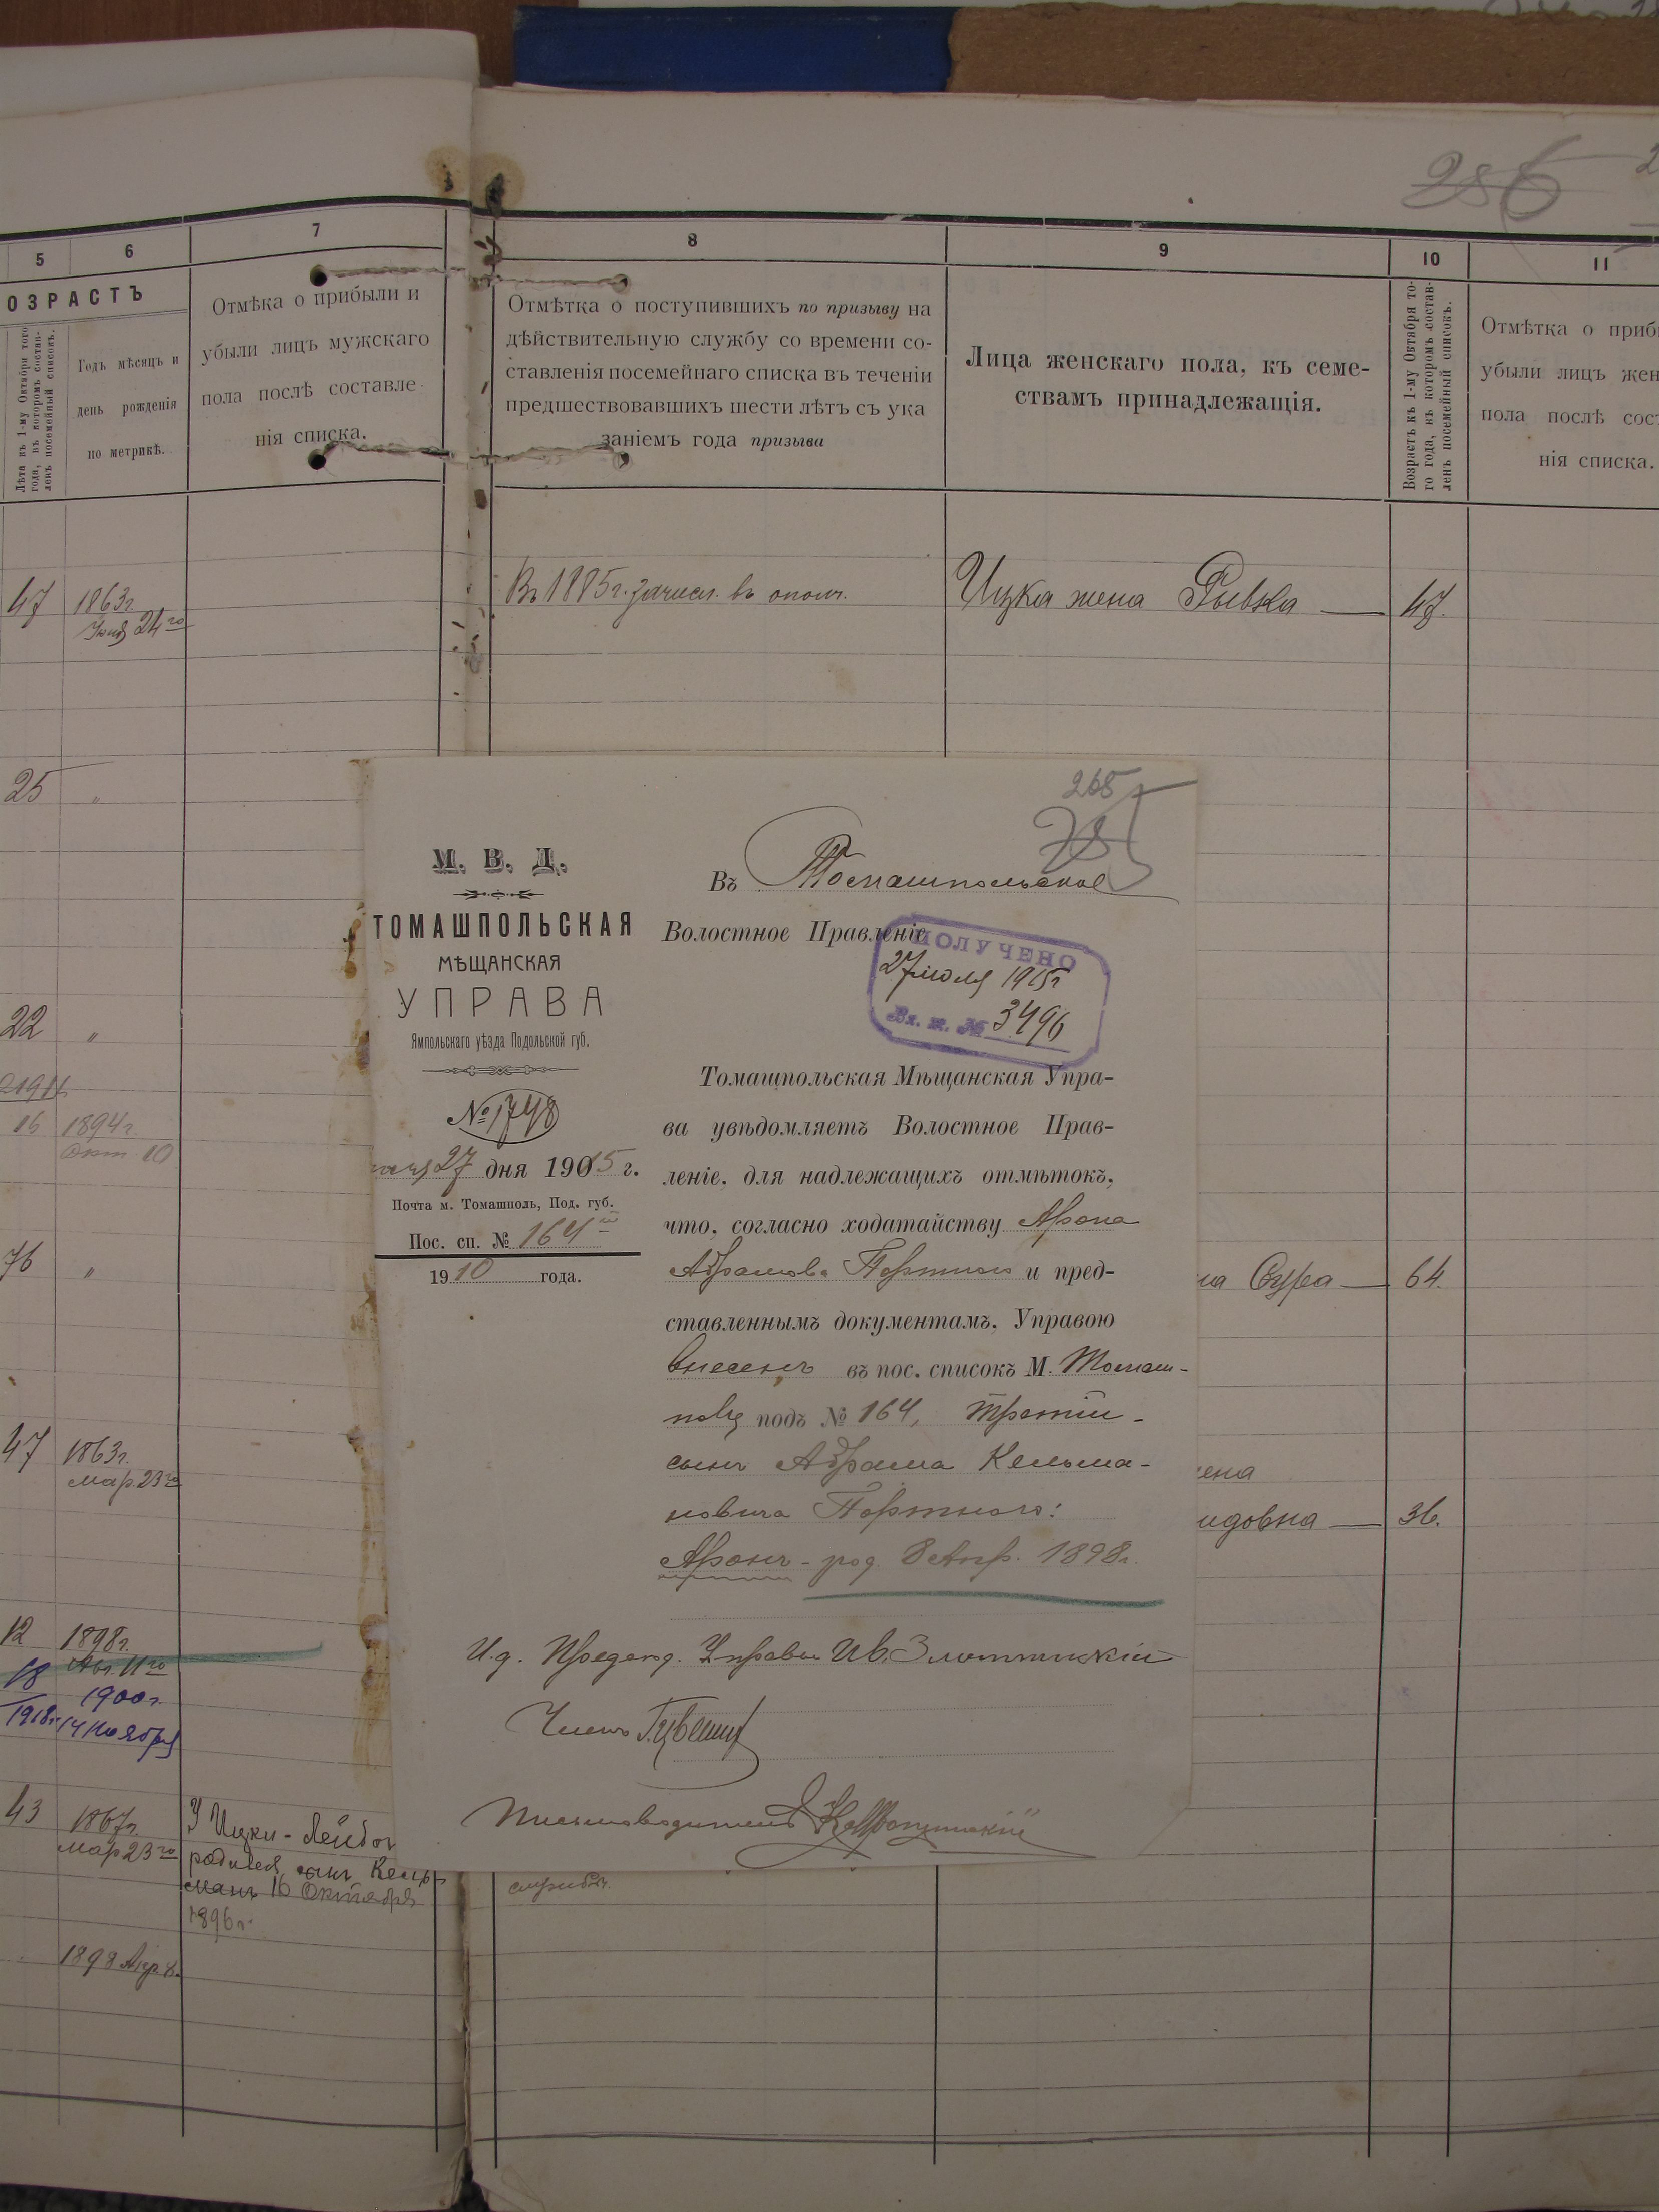 286
5
6
7
8
9
10
11
ОЗРАСТЪ
Лѣта къ 1-му Октября того
года, въ которомъ состав-
ленъ посемейный списокъ.
Годъ мѣсяцъ и
день рожденія
по метрикѣ.
Отмѣка о прибыли и
убыли лицъ мужскаго
пола послѣ составле-
нія списка.
Отмѣтка о поступившихъ по призыву на
дѣйствительную службу со времени со-
ставленія посемейнаго списка въ теченіи
предшествовавшихъ шести лѣтъ съ ука
заніемъ года призыва
Лица женскаго пола, къ семе-
ствамъ принадлежащія.
Возрастъ къ 1-му Октября то-
го года, въ которомъ состав-
ленъ посемейный списокъ.
Отмѣтка о приб
убыли лицъ жен
пола послѣ сос
нія списка.
47 1863г.
24го
Въ 1885г. зачисл. въ ополч.
Ицка жена Рывка — 47.
25 "
22 "
16 1894г.
Окт 10
76 "
47 1863г.
мар. 23го
12 1898г.
Авг. 11го
18 1900г.
1918г. 14 Ноября
43 1867г.
мар 23го
У Ицки-Лейбы
родился сынъ Кель-
манъ 16 Октября
1896г.
1898 Апр 8.
на Сура — 64.
ена
идовна — 36.
службы.
265
М. В. Д.
ТОМАШПОЛЬСКАЯ
МѢЩАНСКАЯ
УПРАВА
Ямпольскаго уѣзда Подольской губ.
№ 1748
27 дня 1915 г.
Почта м. Томашполь, Под. губ.
Пос. сп. № 164й
1910 года.
Въ Томашпольское
Волостное Правленіе
ПОЛУЧЕНО
27 июля 1915г
Вх. ж. № 3496
Томашпольская Мѣщанская Упра-
ва увѣдомляетъ Волостное Прав-
леніе, для надлежащихъ отмѣтокъ,
что, согласно ходатайству Арона
Абрамова Портного и пред-
ставленнымъ документамъ, Управою
внесенъ въ пос. списокъ М. Томаш-
поля подъ № 164, третій-
сынъ Абрама Кельма-
новича Портного:
Аронъ - род. 8 Апр. 1898г.
И.д. Предсѣд. Управы Ив. Злотницкій
Членъ
Письмоводитель